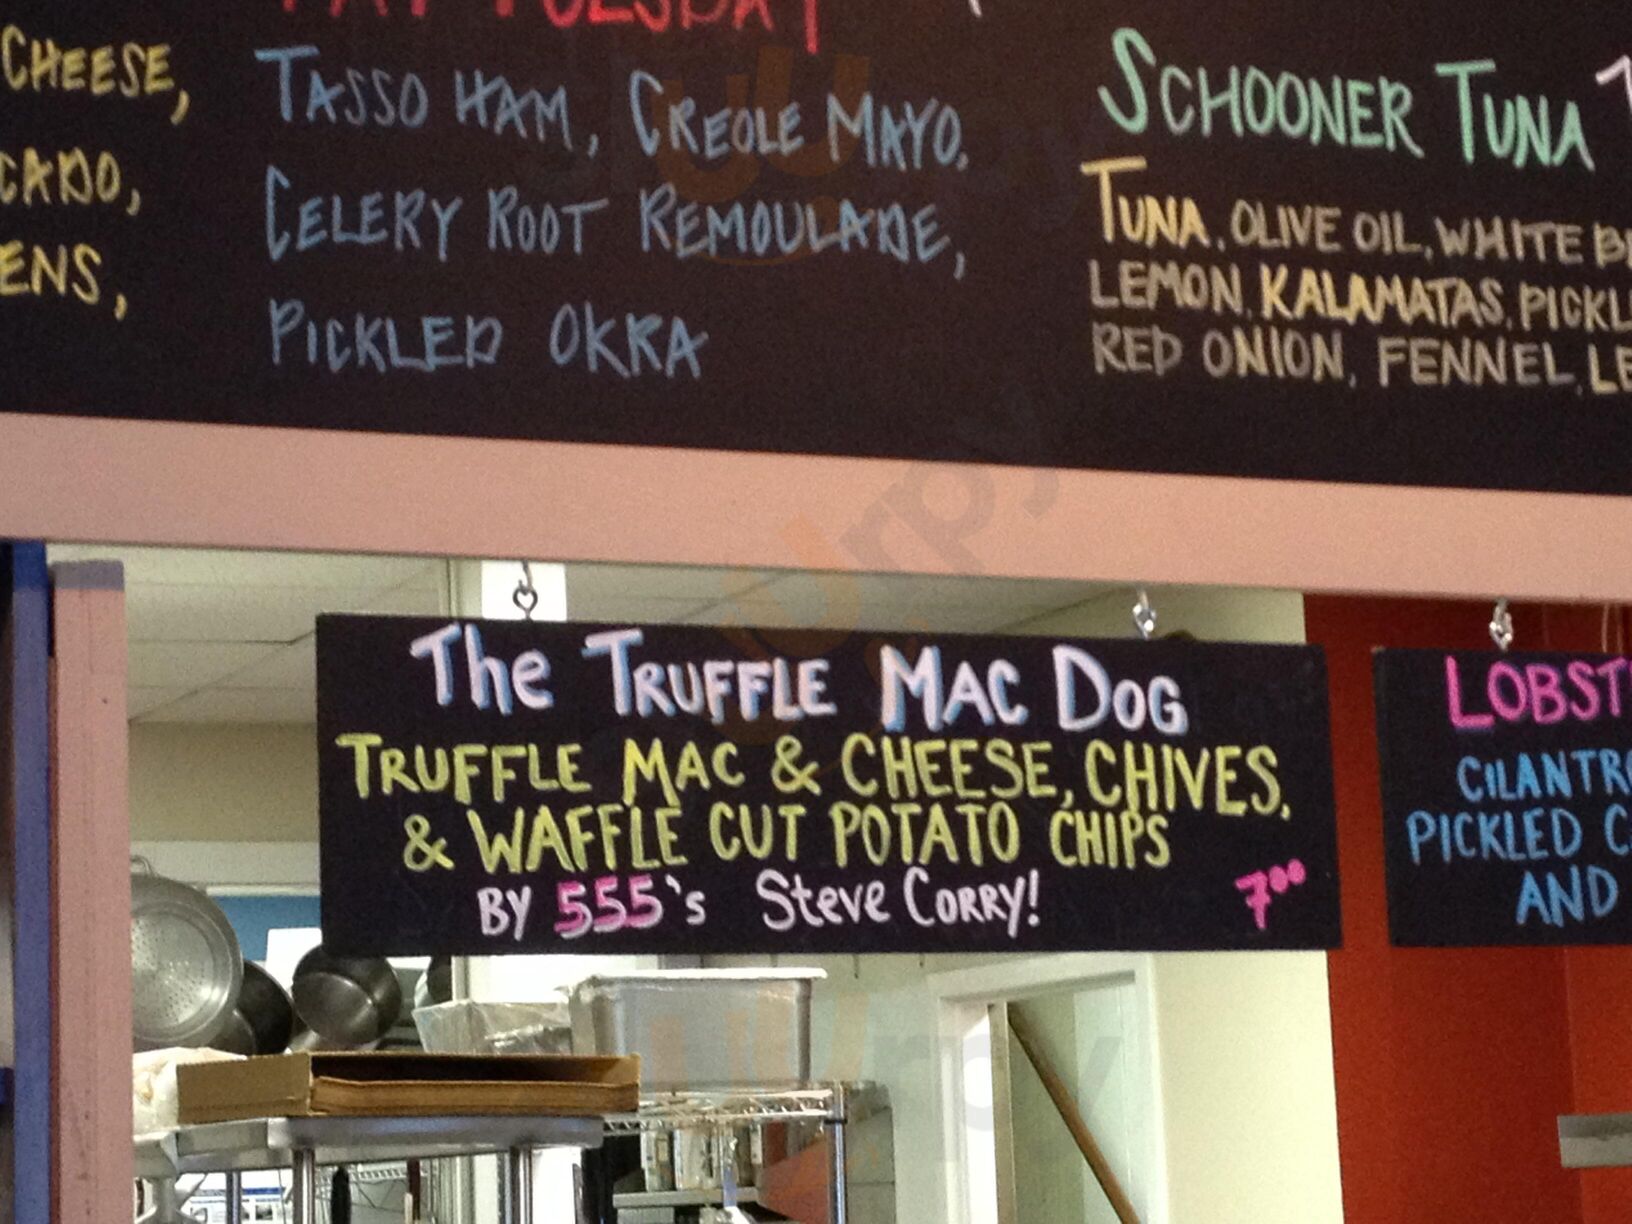 CHEESE,
ENS,
FAT TUESDAY
TASSO HAM, CREOLE MAYO,
CELERY ROOT REMOULADE,
PICKLED OKRA
SCHOONER TUNA
TUNA, OLIVE OIL, WHITE
LEMON, KALAMATAS, PICKL
RED ONION, FENNEL, LE
The TRUFFLE MAC DOG
TRUFFLE MAC & CHEESE, CHIVES,
& WAFFLE CUT POTATO CHIPS
BY 555's Steve CORRY!
7.00
LOBST
CILANTRO
PICKLED C
AND